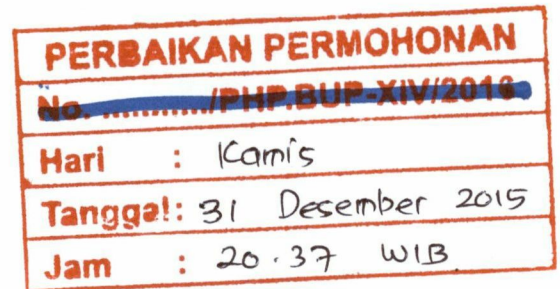 PERBAIKAN PERMOHONAN
No. ............/PHP.BUP-XIV/2016
Hari : Kamis
Tanggal: 31 Desember 2015
Jam : 20.37 WIB